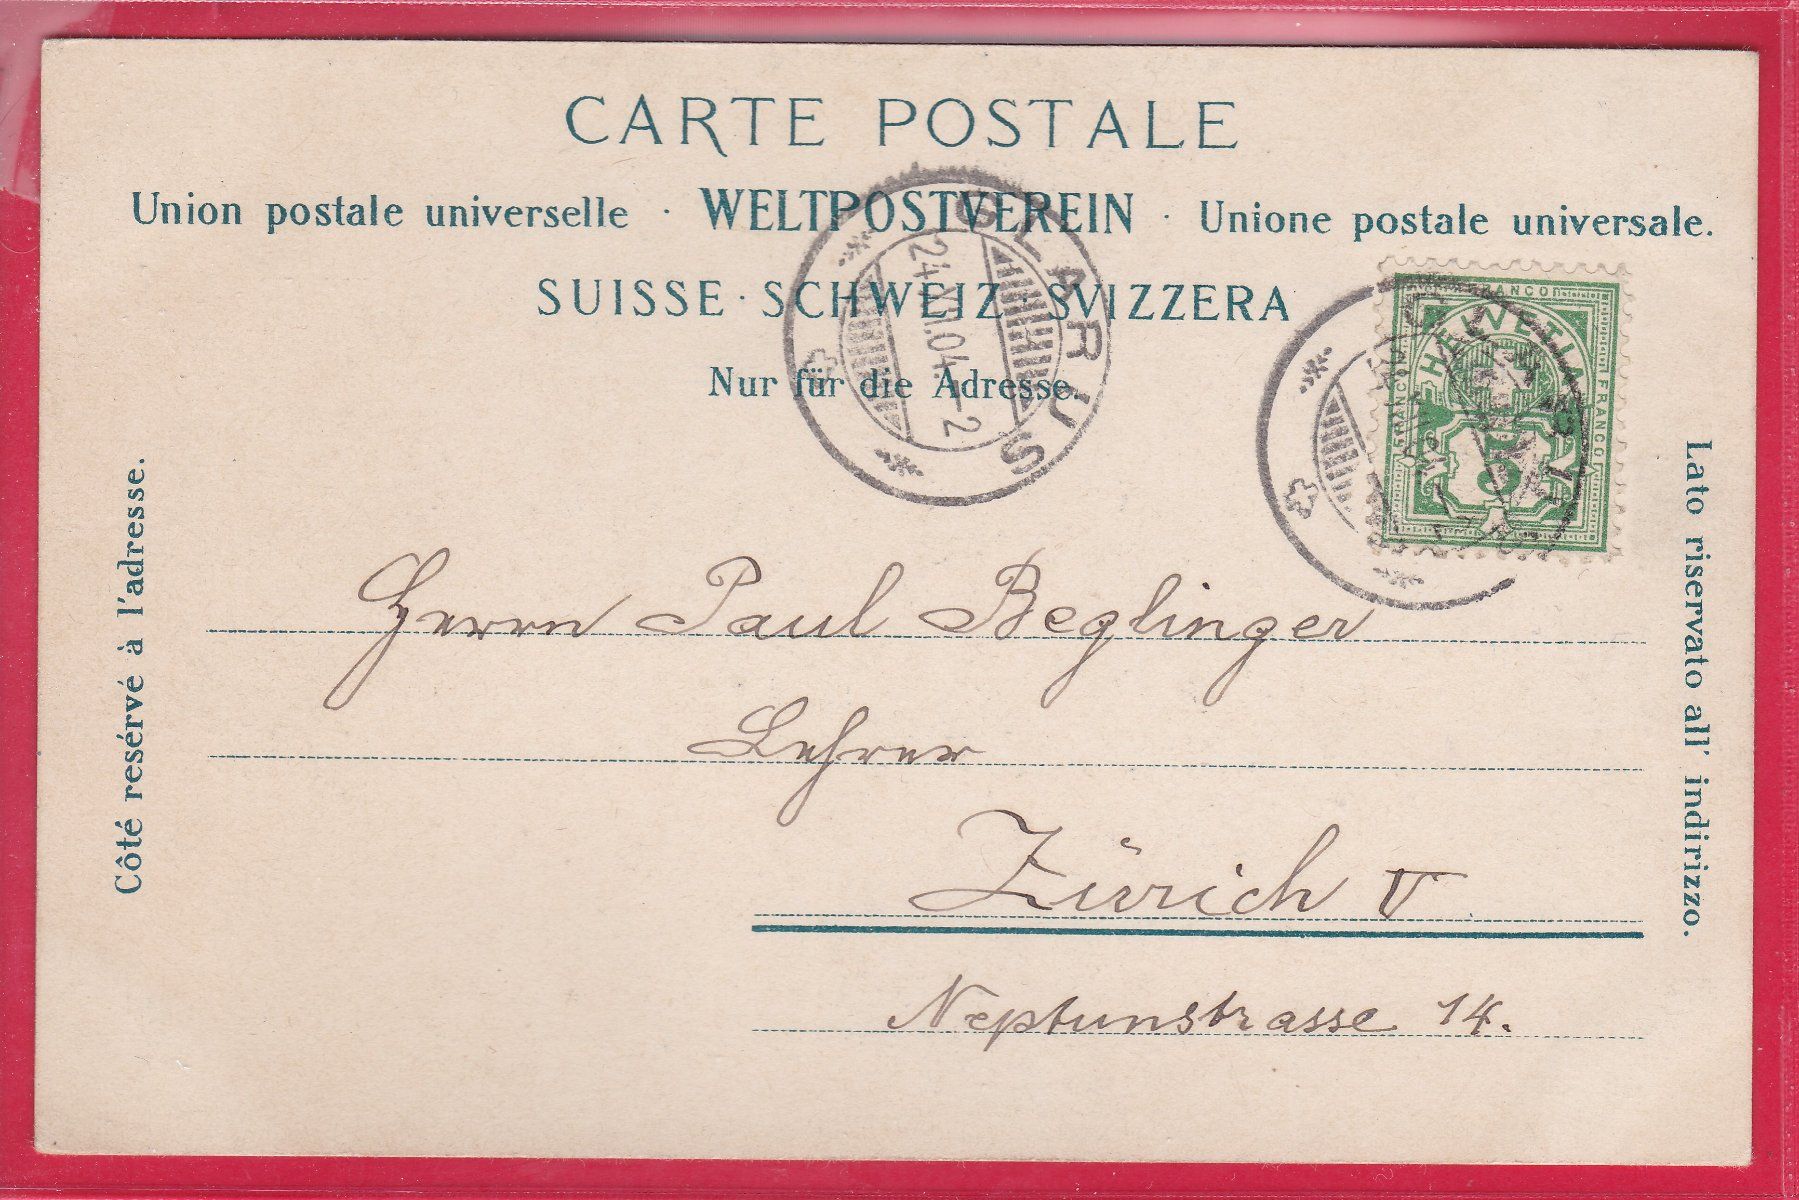 CARTE POSTALE
Union postale universelle · WELTPOSTVEREIN · Unione postale universale.
SUISSE · SCHWEIZ · SVIZZERA
Nur für die Adresse.
GLARUS
FRANCO
HELVETIA
FRANCO
FRANCO
5
Côté resérvé à l'adresse.
Lato riservato all' indirizzo.
Herrn Paul Beglinger
Lehrer
Zürich V
Neptunstrasse 14.